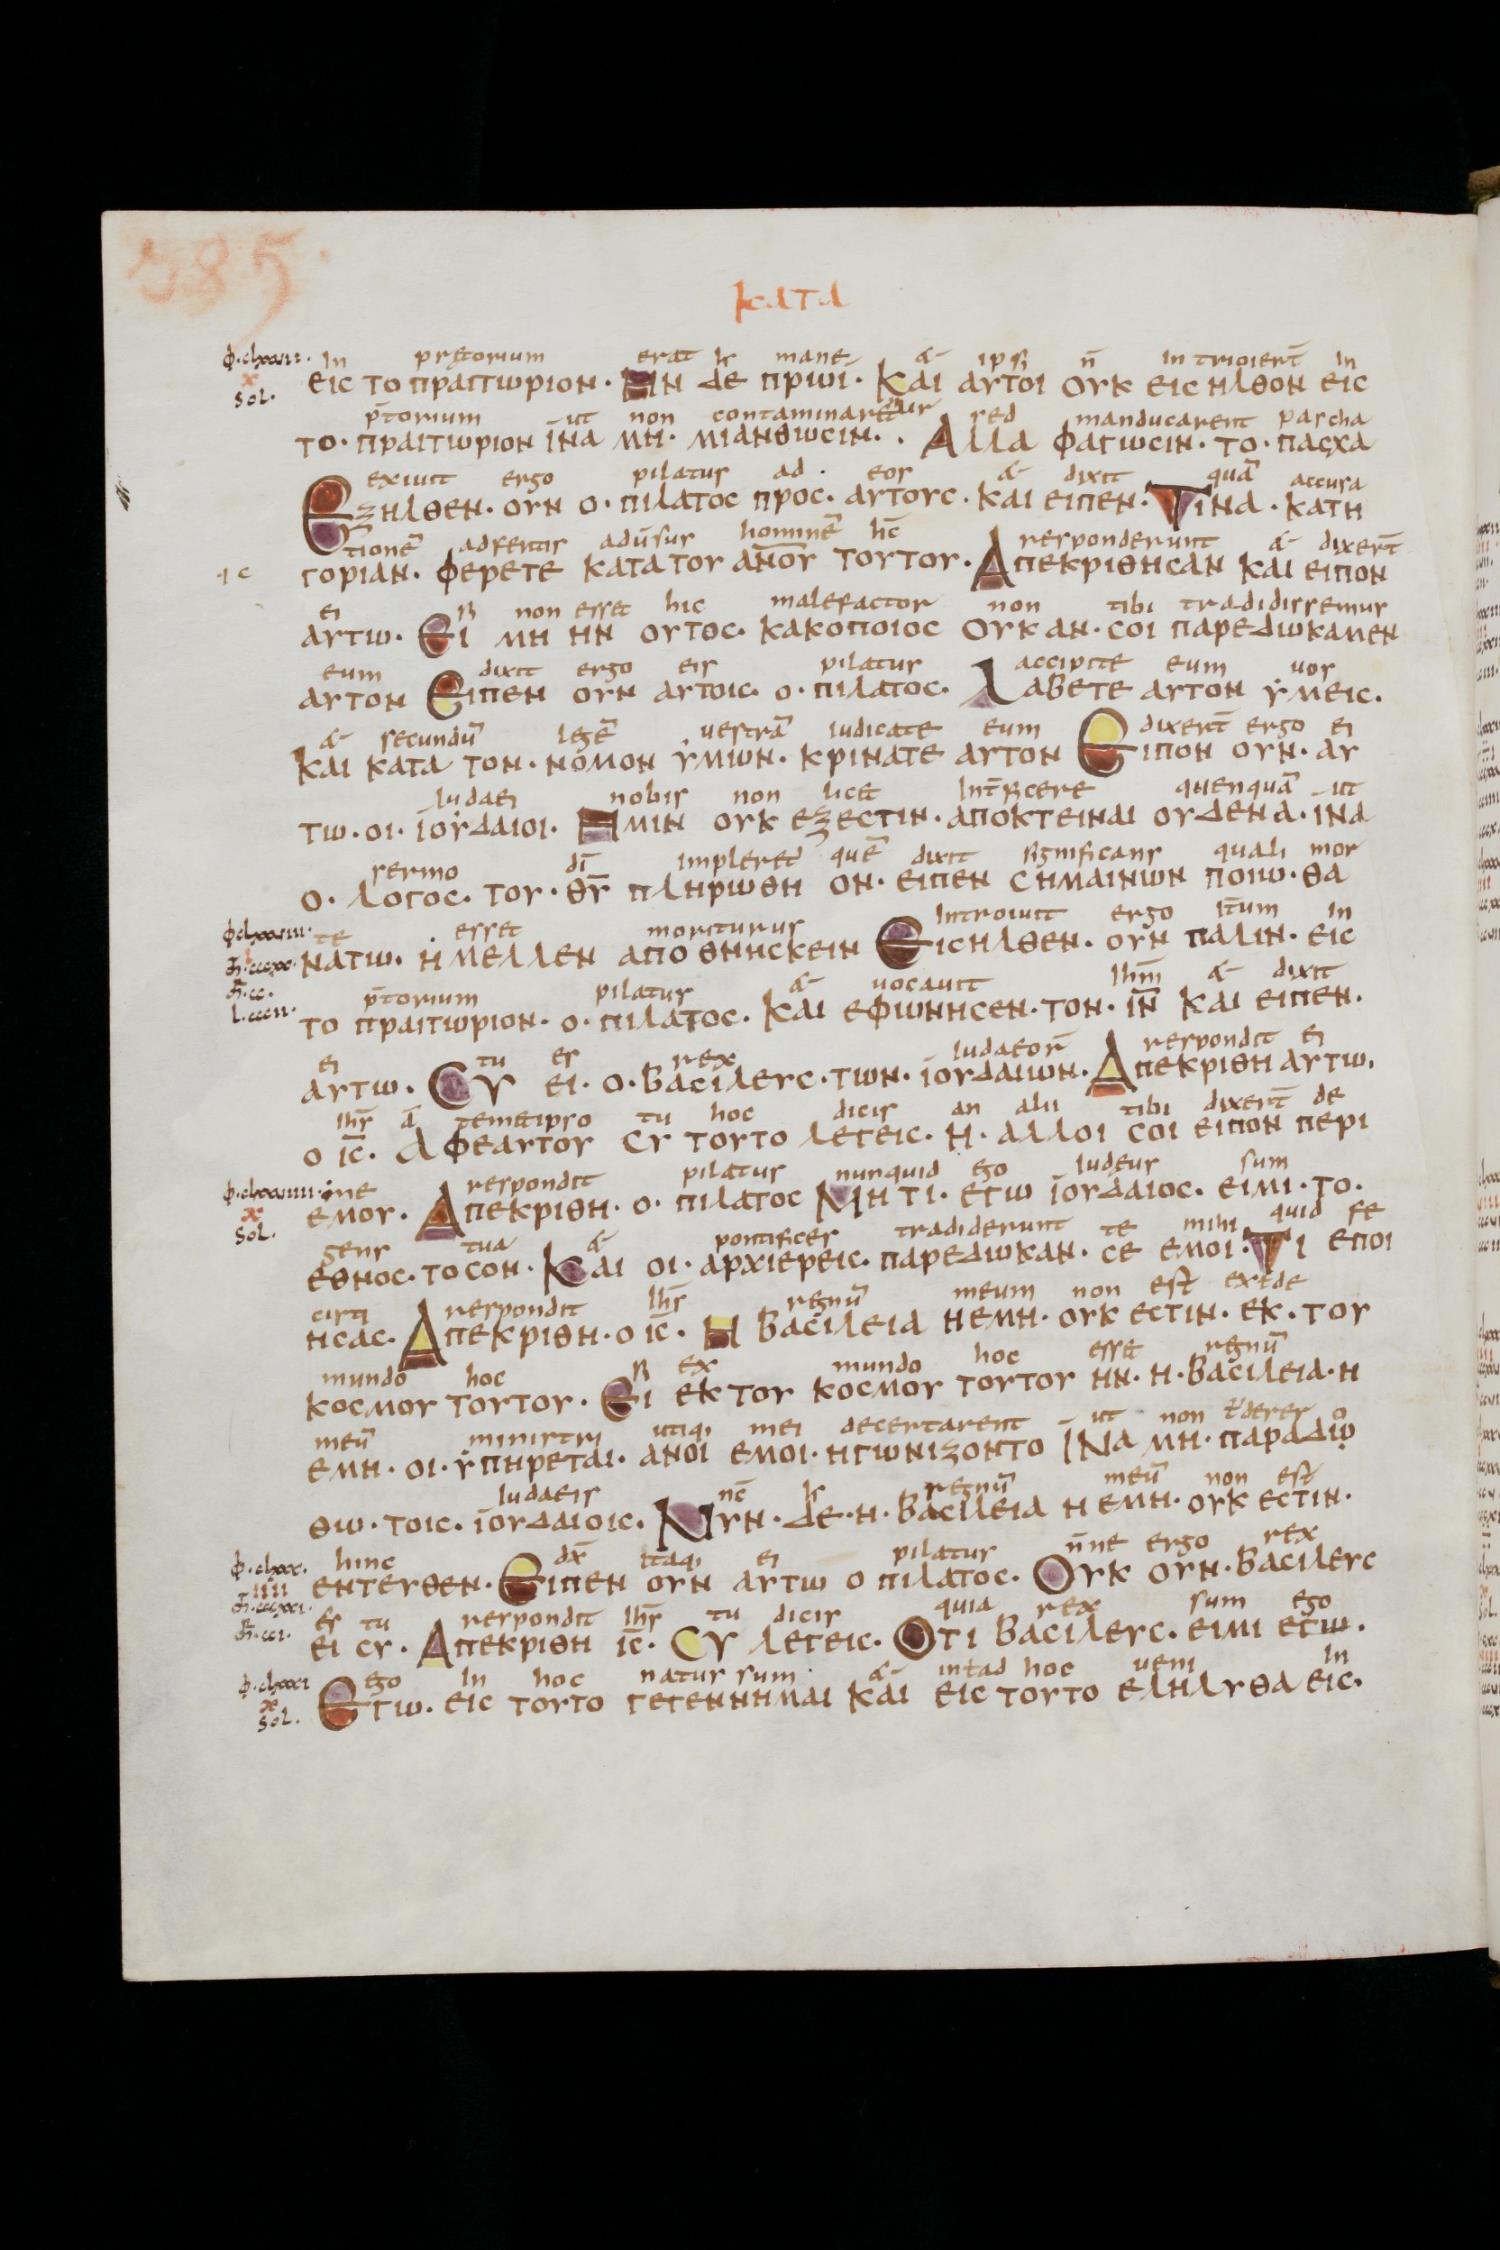 385.
ΚΑΤΑ
φ·clxxvii·
In prętorium erat mane & ipsi n̄ introiert̄ in
ειϲ το πραιτωριον· Ην δε πρωϊ· Και αυτοι ουκ ειϲηλθον ειϲ
Sol·
p̄torium ut non contaminarentur sed manducarent pascha
το· πραιτωριον ϊνα μη· μιανθωϲιν·. Αλλα φαγωϲιν· το· παϲχα
exiuit ergo pilatus ad eos & dixit quā accusa
Εξηλθεν· ουν ο· πιλατοϲ προϲ· αυτουϲ· και ειπεν· Τινα· κατη
tionē adfertis aduersus hominē hc̄
γοριαν· φερετε κατα του αν̄ου τουτου· Απεκριθηϲαν και ειπον
responderunt & dixert̄
ei si non esset hic malefactor non tibi tradidissemus
αυτω· Ει μη ην ουτοϲ· κακοποιοϲ ουκ αν· ϲοι παρεδωκαμεν
eum dixit ergo eis pilatus accipite eum uos
αυτον Ειπεν ουν αυτοιϲ· ο· πιλατοϲ· Λαβετε αυτον ϋμειϲ·
& secundū legē uestrā iudicate eum dixert̄ ergo ei
Και κατα τον· νομον ϋμων· κρινατε αυτον Ειπον ουν· αυ
Iudaei nobis non licet Interficere quenquā ut
τω· οι· ϊουδαιοι· Ημιν ουκ εξεϲτιν· αποκτειναι ουδενα· ινα
sermo dī impleret quē dixit significans quali mor
ο· λογοϲ· του· θ̄υ πληρωθη ον· ειπεν ϲημαινων ποιω· θα
φ·clxxviii·
te esset moriturus Introiuit ergo iterum In
νατω· ημελλεν αποθνηϲκειν Ειϲηλθεν· ουν παλιν· ειϲ
p̄torium pilatus & uocauit Ihm̄ & dixit
το πραιτωριον· ο· πιλατοϲ· Και εφωνηϲεν· τον· ιν̄ και ειπεν·
ei tu es rex Iudaeor̄ respondit ei
αυτω· Ϲυ ει· ο· βαϲιλευϲ· των· ϊουδαιων· Απεκριθη αυτω.
Ihs̄ ā temetipso tu hoc dicis an alii tibi dixert̄ de
ο ιϲ̄· Αφεαυτου ϲυ τουτο λεγειϲ· η· αλλοι ϲοι ειπον περι
φ·clxxviiii·
me respondit pilatus nunquid ego Iudeus sum
εμου· Απεκριθη· ο· πιλατοϲ Μητι· εγω ϊουδαιοϲ· ειμι· το·
Sol·
gens tua & pontifices tradiderunt te mihi quid fe
εθνοϲ· το ϲον· Και οι· αρχιερειϲ· παρεδωκαν· ϲε εμοι· Τι εποι
cisti respondit Ihs̄ regnū meum non est exде
ηϲαϲ· Απεκριθη· ο ιϲ̄· Η βαϲιλεια η εμη· ουκ εϲτιν· εκ· του
mundo hoc si ex mundo hoc esset regnū
κοϲμου τουτου· Ει εκ του κοϲμου τουτου ην· η· βαϲιλεια· η
meū ministri utiqi mei decertarent ut non t̄derer
εμη· οι· ϋπηρεται· ανοι εμοι· ηγωνιζοντο ϊνα μη· παραδιω
Iudaeis nc̄ regnū meū non est
θω· τοιϲ· ϊουδαιοιϲ· Νυν· δε· η· βαϲιλεια η εμη· ουκ εϲτιν·
φ·clxxx·
hinc dx̄ itaqi ei pilatus n̄ne ergo rex
εντευθεν· Ειπεν ουν αυτω ο πιλατοϲ· Ουκ ουν· βαϲιλευϲ
es tu respondit Ihs̄ tu dicis quia rex sum ego
ει ϲυ· Απεκριθη ιϲ̄· Ϲυ λεγειϲ· Οτι βαϲιλευϲ· ειμι εγω·
φ·clxxxi
ego In hoc natus sum & hoc ueni In
Εγω· ειϲ τουτο γεγεννημαι και ειϲ τουτο εληλυθα ειϲ·
Sol·